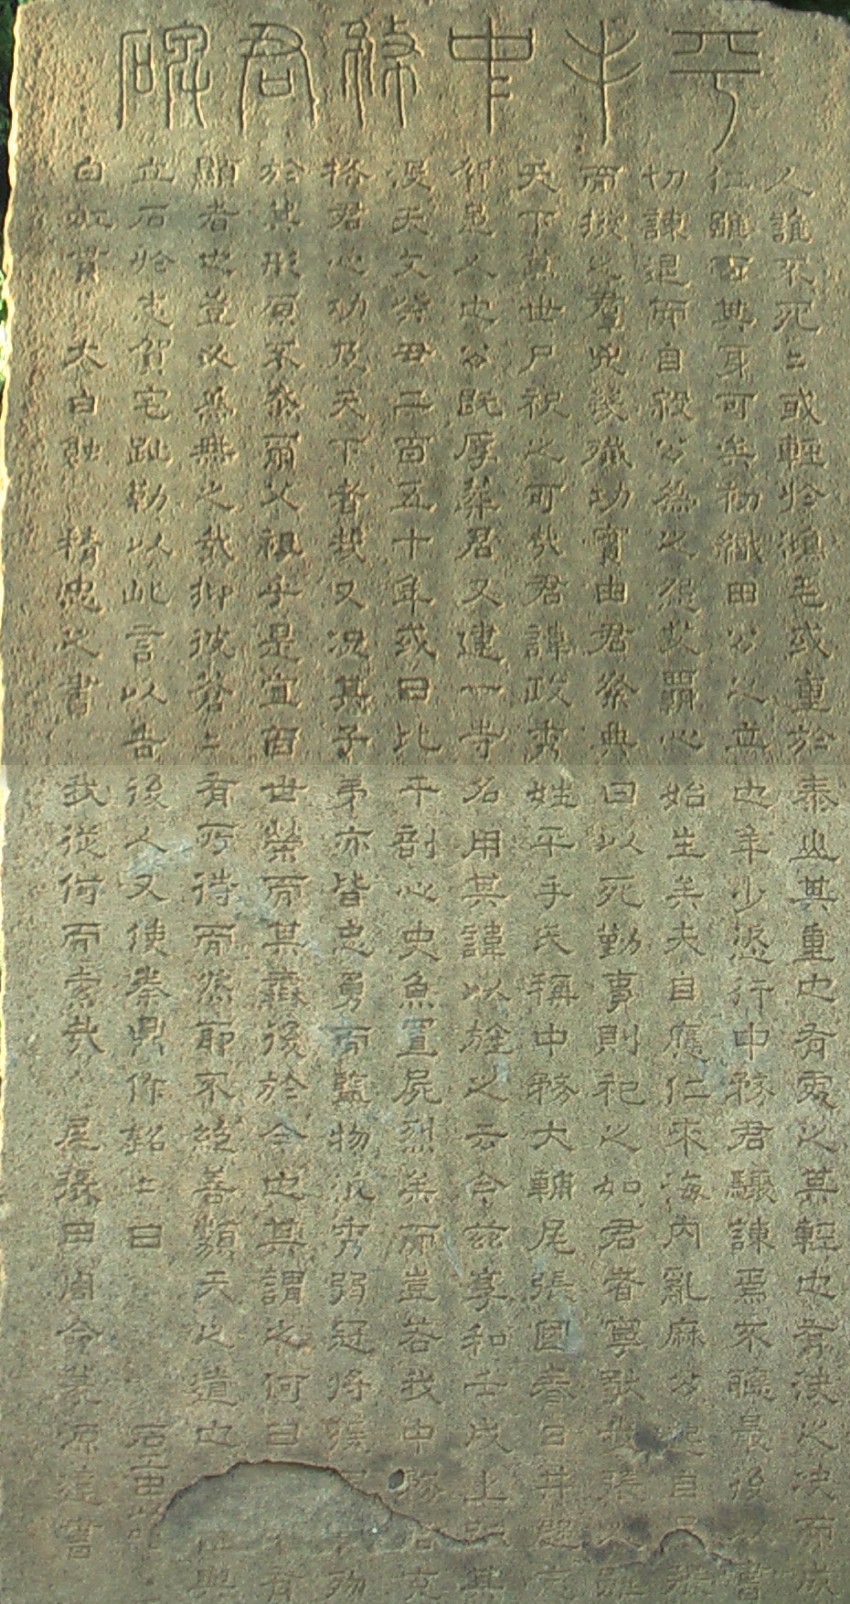 平手中務君碑
人誰不死〻或輕於鴻毛或重於泰山其重也有處之其輕也有決之決而成
仁雖百其身可矣初織田公之立也年少恣行中務君驟諫焉不聽最後以書
切諫退而自殺公為之怨艾覇心始生矣夫自應仁來海内亂麻公起自
而撥之羣兇殲功實由君祭典曰以死勤事則祀之如君者寧
天下萬世尸祝之可哉君諱政秀姓平手氏稱中務大輔尾張國春日井
人也公既厚葬君又建一寺名用其諱以旌之云今茲享和壬戌上距其
沒天文癸丑二百五十年或曰比干剖心史魚置屍烈矣而豈若我中務君克
格君心功及天下者哉又況其子弟亦皆忠勇而監物汎秀弱冠將
於其形原不祭爾父祖乎是宜百世榮而其後於今也其謂之何曰有
顯者也豈以為無之哉抑彼蒼〻有所待而然耶不絶善類天之道也
立石於志賀宅趾勒以此言以告後人又使秦鼎作銘〻曰
白虹貫 太白蝕 精忠之書 我從何而索哉 尾張田